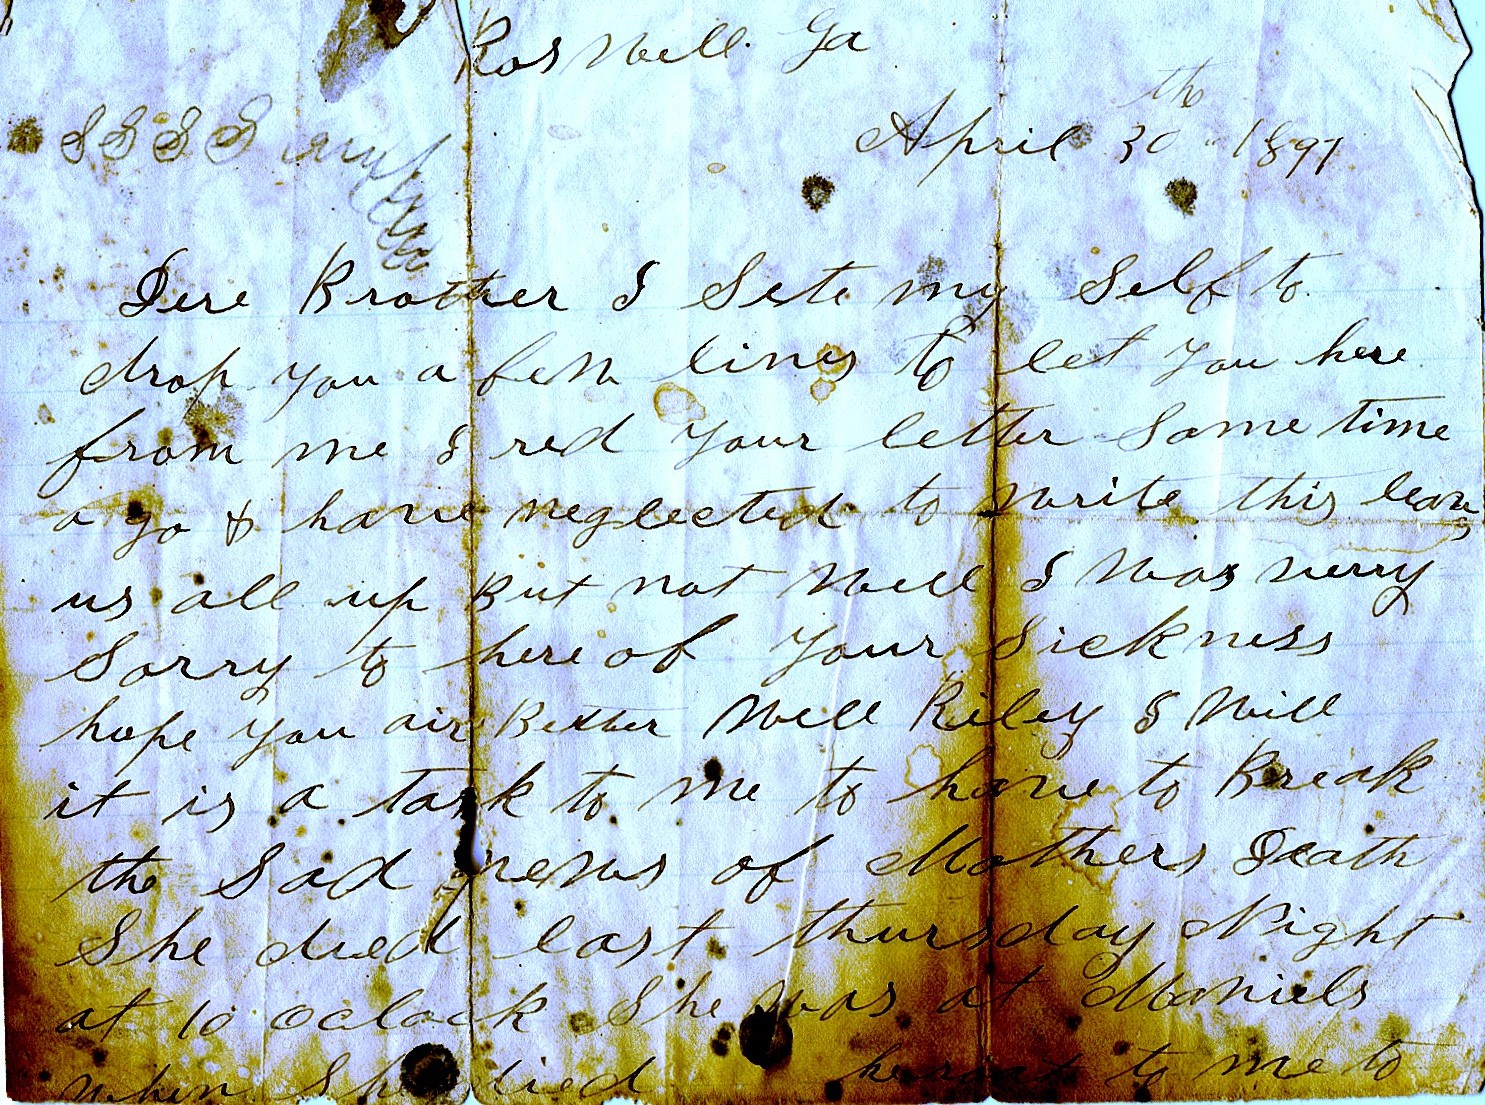 Roswell. Ga
th
April 30 1897
S S S S
Dere Brother I Sete my Self to
drop you a few lines to let you here
from me I red your letter Some time
a go & have neglected to write this leav
us all up But not Well I Was verry
Sorry to here of your Sickness
hope you air Better Well Riley I Will
it is a task to me to have to Break
the Sad news of Mothers Death
She died last thursday Night
at 10 Oclock She was at
when She died to me to